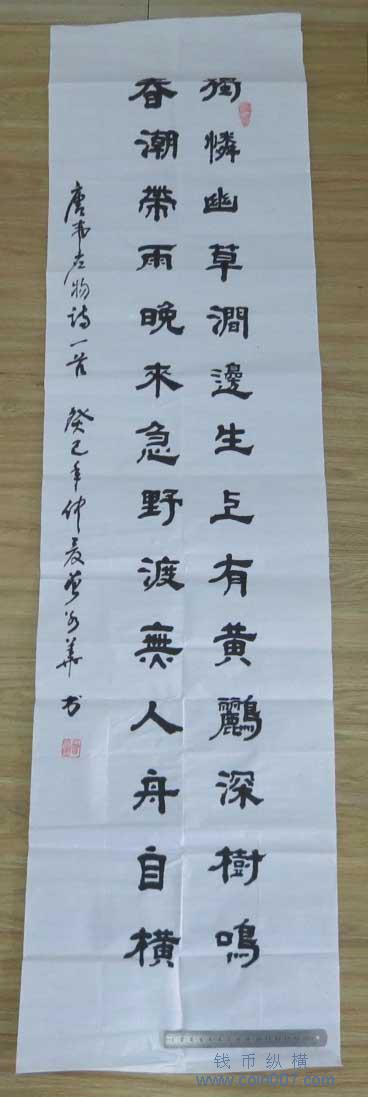 獨憐幽草澗邊生上有黃鸝深樹鳴
春潮帶雨晚來急野渡無人舟自橫
唐韦应物诗一首 癸巳年仲夏 华书
钱币纵横
www.coin007.com